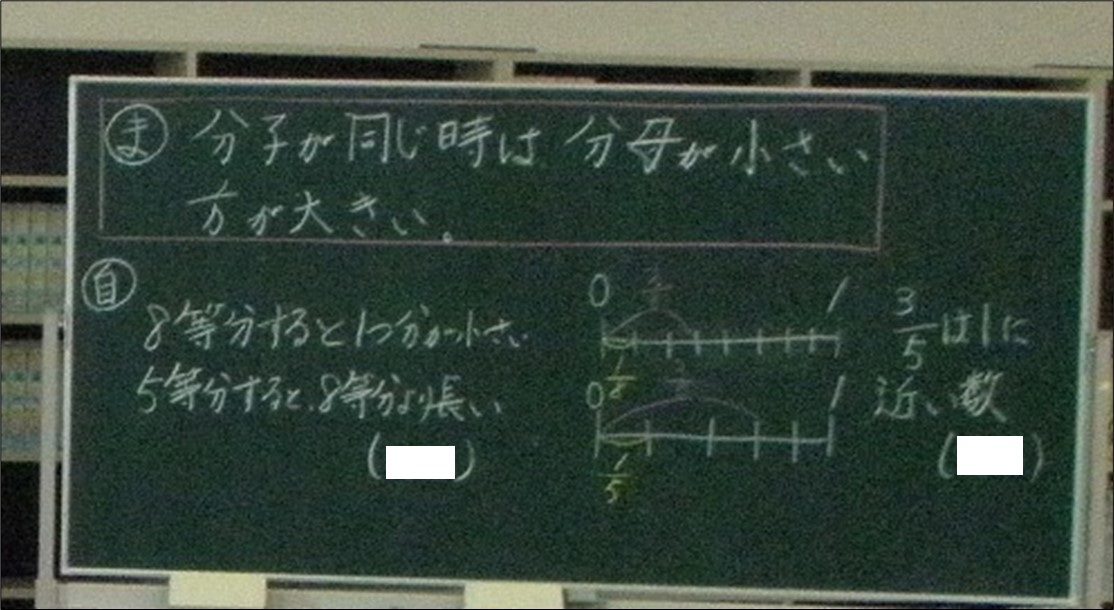 ま 分子が同じ時は 分母が小さい
方が大きい。
自
8等分すると1つ分が小さい
5等分すると、8等分より長い
0 1
1/8
0 1
1/5
3/5は1に
近い数